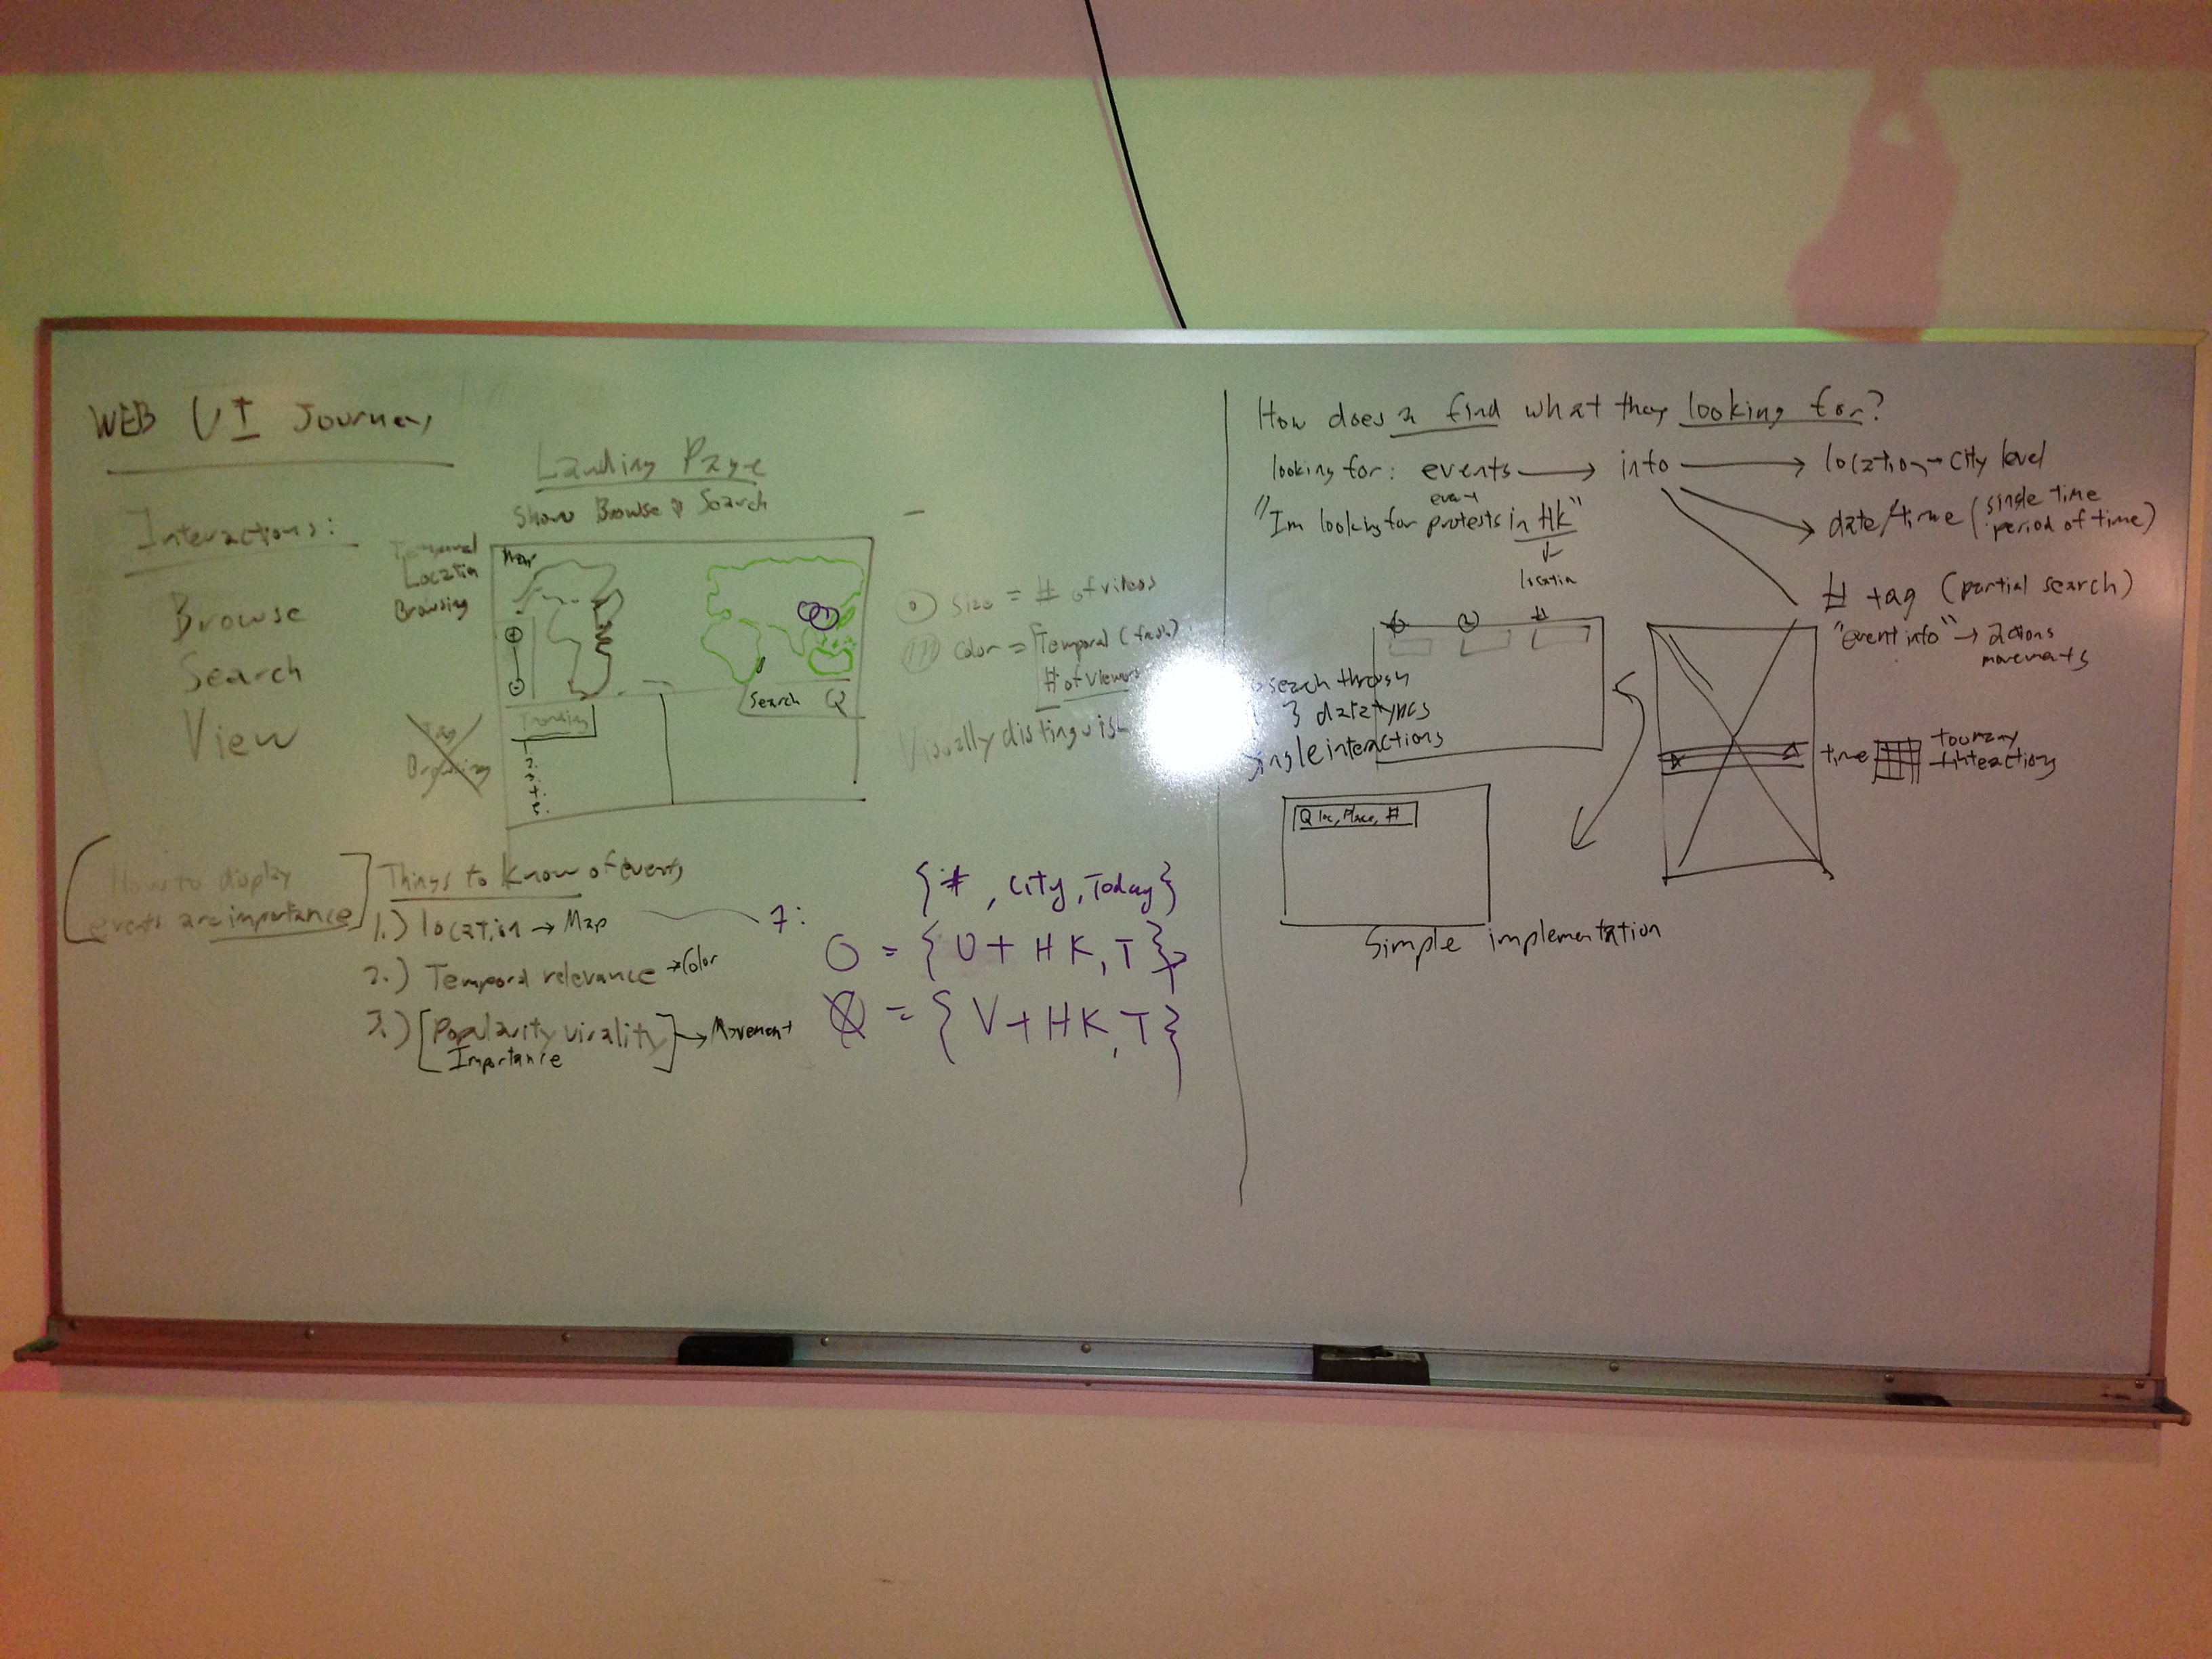 WEB UI Journey
Interactions:
Browse
Search
View
Landing Page
Show Browse & Search
Temporal
Location
Browsing
Map
+
-
Search Q
Trending
1.
2.
3.
4.
5.
Tag
Browsing
Size = # of videos
Color = Temporal (fresh)
# of viewers
Visually distinguish
How to display
events are importance
Things to know of events
1.) location → Map
2.) Temporal relevance → Color
3.) [Popularity virality] → Movement
Importance
{#, City, Today}
O = {U + HK, T}
= {V + HK, T}
How does a find what they looking for?
looking for: events → info → location → city level
event
"Im looking for protests in HK"
location
date/time (single time
period of time)
# tag (partial search)
"event info" → actions
movements
#
search through
3 datatypes
single interactions
Q loc, Place, #
Simple implementation
time